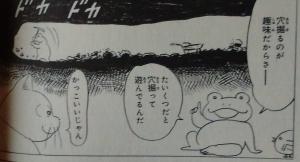 ドカ
ドカ
穴掘るのが
趣味だからさー
たいくつだと
穴掘って
遊んでるんだ
かっこいいじゃん